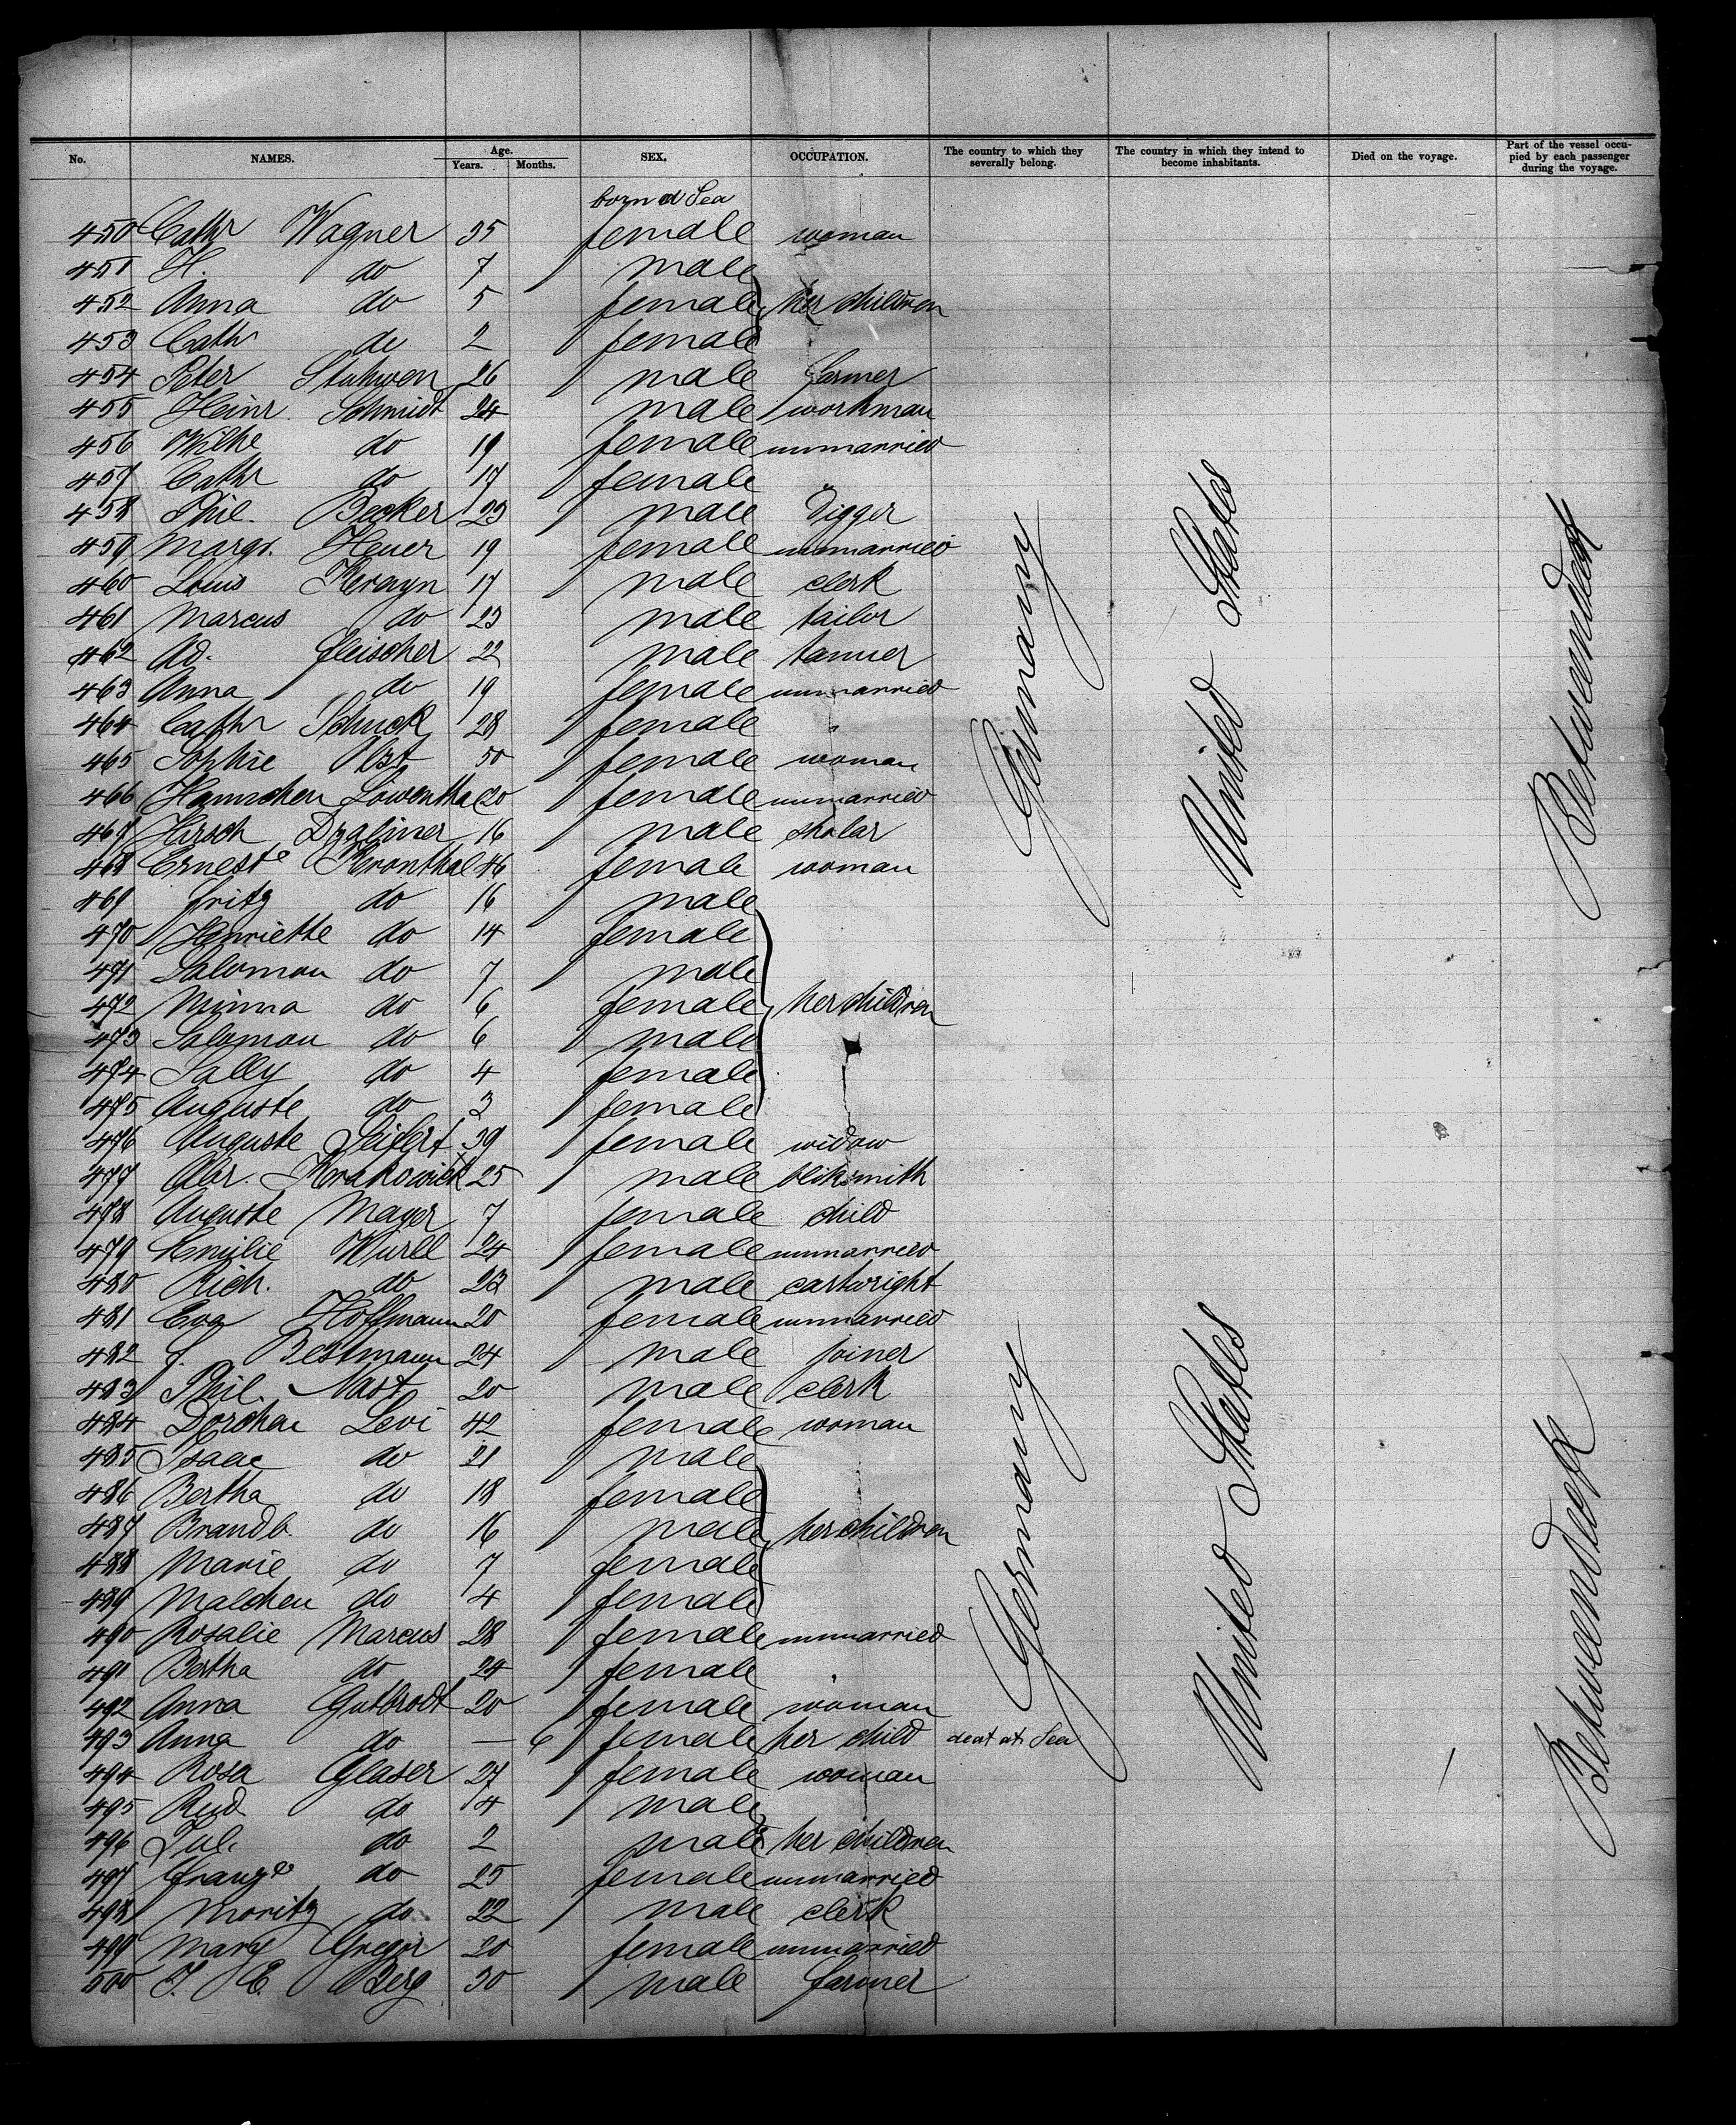 No. NAMES. Age. Years. Months. SEX. OCCUPATION. The country to which they severally belong. The country in which they intend to become inhabitants. Died on the voyage. Part of the vessel occupied by each passenger during the voyage.
born at Sea
450 Cathr Wagner 35 female woman
451 H. do 7 male
452 Anna do 5 female her children
453 Cathr do 2 female
454 Peter Stuhwen 26 male farmer
455 Heinr Schmidt 24 male workman
456 Wilhe do 19 female unmarried
457 Cathr do 17 female "
458 Phil. Becker 23 male Digger
459 Margr. Heuer 19 female unmarried
460 Louis Kerayn 17 male clerk
461 Marcus do 23 male tailor
462 Ad. Fleischer 22 male tanner
463 Anna do 19 female unmarried
464 Cathr Schuck 28 female "
465 Sophie Obst 50 female woman
466 Hannchen Löwenthal 20 female unmarried
467 Hirsch Dzaliner 16 male sholar
468 Erneste Kronthal 46 female woman
469 Fritz do 16 male
470 Henriette do 14 female
471 Salomon do 7 male
472 Minna do 6 female her children
473 Salomon do 6 male
474 Sally do 4 female
475 Auguste do 3 female
476 Auguste Seifert 39 female widow
477 Abr. Krakowick 25 male bliksmith
478 Auguste Mayer 7 female child
479 Emilie Wurll 24 female unmarried
480 Rich. do 23 male cartwright
481 Eva Hoffmann 20 female unmarried
482 J. Bestmann 24 male joiner
483 Phil. Nast 20 male clerk
484 Dorchen Levi 42 female woman
485 Isaac do 21 male
486 Bertha do 18 female
487 Brandb. do 16 male her children
488 Marie do 7 female
489 Malchen do 4 female
490 Rosalie Marcus 28 female unmarried
491 Bertha do 24 female "
492 Anna Gutbrodt 20 female woman
493 Anna do — 6 female her child deat at Sea
494 Rosa Glaser 27 female woman
495 Rud do 4 male
496 Jul. do 2 male her children
497 Franze do 25 female unmarried
498 Moritz do 22 male clerk
499 Mary Gregor 20 female unmarried
500 J. E. Berg 30 male farmer
Germany
United States
Betweendeck
Germany
United States
Betweendeck